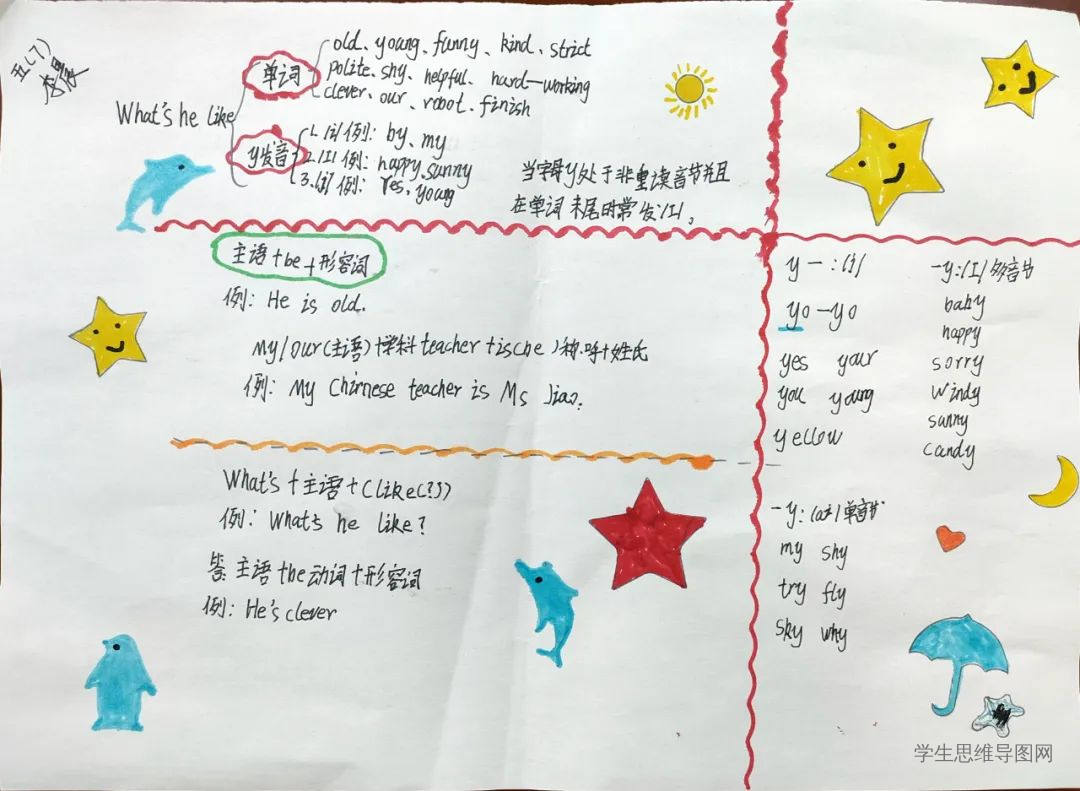 五(7)
What's he like
单词
old、young、funny、kind、strict
polite、shy、helpful、hard-working
clever、our、robot、finish
y发音
1. 例: by、my
2. /I/ 例: happy sunny
3. /j/ 例: Yes、young
当字母y处于非重读音节并且
在单词末尾时常发/I/。
主语+be+形容词
例: He is old.
My/our(主语)+学科teacher+is(be)称呼+姓氏
例: My Chirnese teacher is Ms Jiao.
What's+主语+(like(?))
例: What's he like?
答: 主语+be动词+形容词
例: He's clever
y－: /j/
yo－yo
yes your
you young
yellow
－y: /I/ 多音节
baby
happy
sorry
windy
sunny
candy
－y: /aI/ 单音节
my shy
try fly
sky why
学生思维导图网